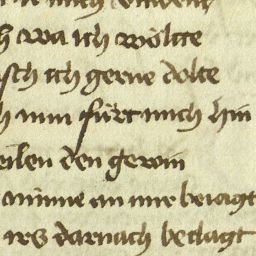 mich
h wa ich wolte
sch ich gerne dolte
h nun fürt mich hin
eilen den gewin
minne an mir beiagt
irs darnach betlagt